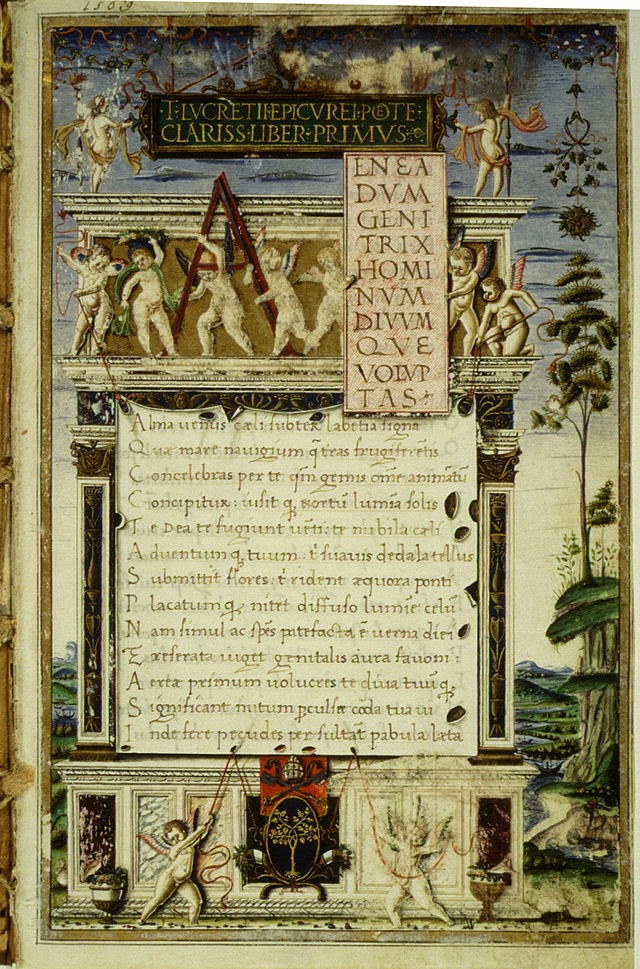 1569
T·LVCRETII·EPICVREI·POETE·
CLARISS·LIBER·PRIMVS·
A
ENEA
DVM
GENI
TRIX
HOMI
NVM
DIVVM
QVE
VOLVP
TAS
Alma venus cæli subter labetia signa
Quæ mare navigium q̃ tras frugiferẽtis
Concelebras per te qm̃ genus om̃e animãtũ
Concipitur: uisit q̨ exortũ lumia solis
Te Dea te fugiunt vẽti: te nubila cæli
Aduentum q̨ tuum: t̃ suauis dedala tellus
Submittit flores: t̃ rident æquora ponti
Placatum q̨ nitet diffuso lumiẽ celũ
Nam simul ac spẽs patefacta ẽ verna diei
Et reserata uiget genitalis aura favoni:
Aereæ primum uolucres te diua tuũ q̨
Significant initum ꝑculsæ corda tua ui
Inde fere pecudes persultãt pabula læta